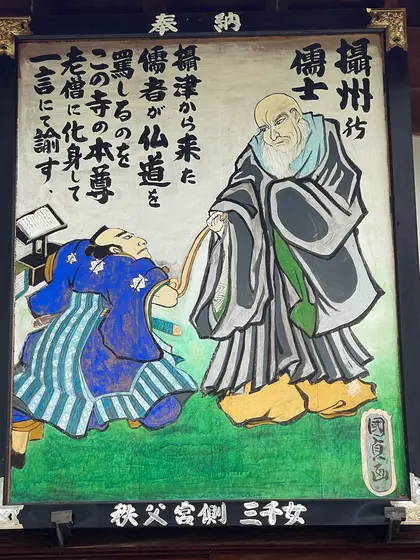 奉納
攝州
儒士
攝津から来た
儒者が仏道を
罵しるのを
この寺の本尊
老僧に化身して
一言にて諭す.
國貞画
秩父宮側 三千女